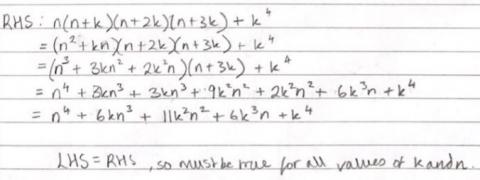 RHS: n(n+k)(n+2k)(n+3k) + k⁴
= (n²+kn)(n+2k)(n+3k) + k⁴
= (n³ + 3kn² + 2k²n)(n+3k) + k⁴
= n⁴ + 3kn³ + 3kn³ + 9k²n² + 2k²n² + 6k³n + k⁴
= n⁴ + 6kn³ + 11k²n² + 6k³n + k⁴
LHS = RHS, so must be true for all values of k and n.